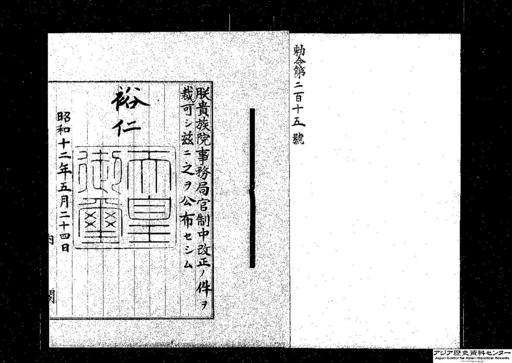 勅令第二百十五號
朕貴族院事務局官制中改正ノ件ヲ
裁可シ茲ニ之ヲ公布セシム
裕仁
天皇
御璽
昭和十二年五月二十四日
内閣
アジア歴史資料センター
Japan Center for Asian Historical Records